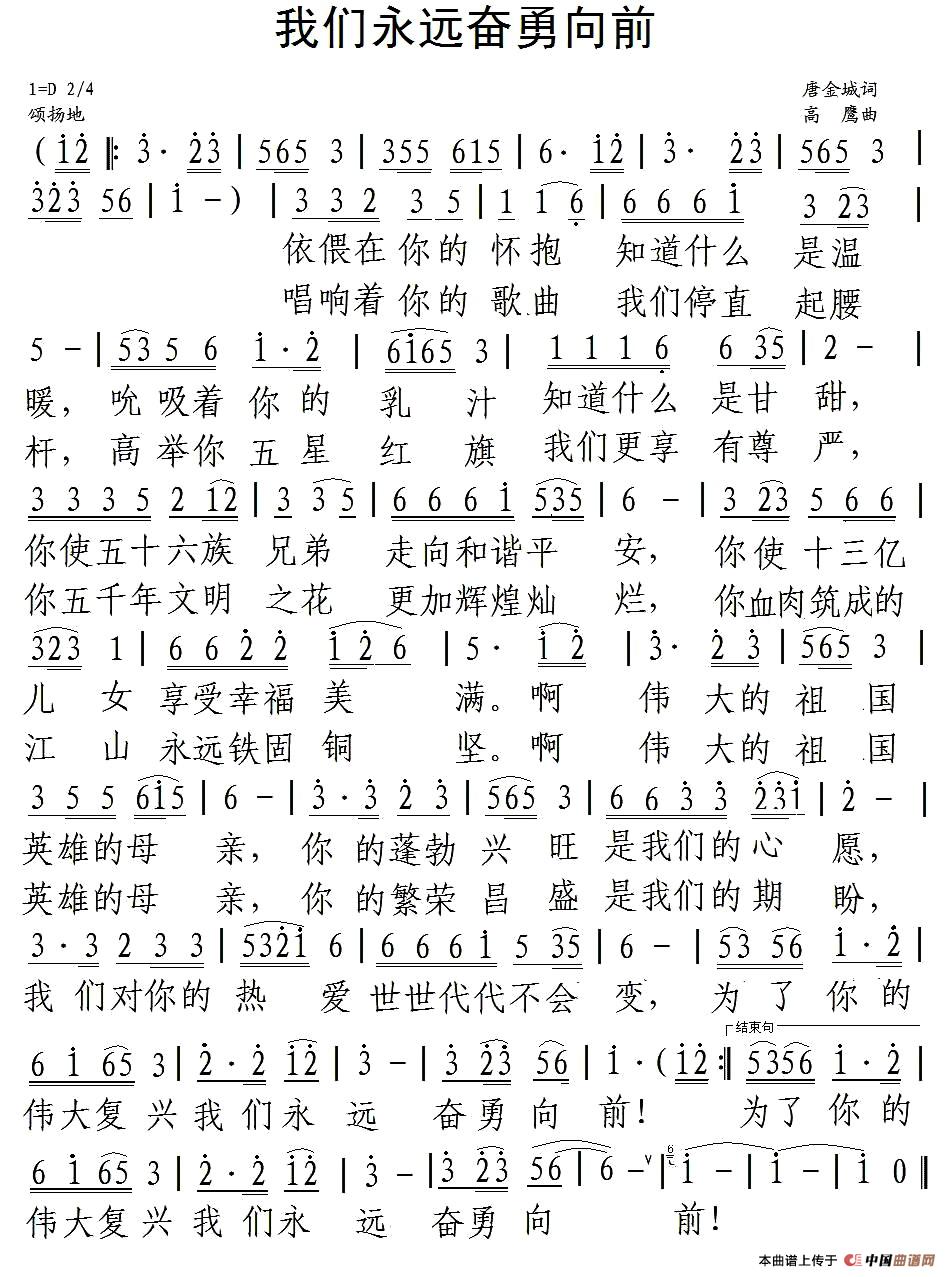 我们永远奋勇向前
1=D 2/4 唐金城词
颂扬地 高 鹰曲
( 1 2 ‖: 3 · 2 3 | 5 6 5 3 | 3 5 5 6 1 5 | 6 · 1 2 | 3 · 2 3 | 5 6 5 3 |
3 2 3 5 6 | 1 - ) | 3 3 2 3 5 | 1 1 6 | 6 6 6 1 3 2 3 |
依偎在你的怀抱 知道什么 是温
唱响着你的歌曲 我们停直 起腰
5 - | 5 3 5 6 1 · 2 | 6 1 6 5 3 | 1 1 1 6 6 3 5 | 2 - |
暖，吮吸着你的乳汁 知道什么是甘甜，
杆，高举你五星红旗 我们更享有尊严，
3 3 3 5 2 1 2 | 3 3 5 | 6 6 6 1 5 3 5 | 6 - | 3 2 3 5 6 6 |
你使五十六族兄弟 走向和谐平安，你使十三亿
你五千年文明之花 更加辉煌灿烂，你血肉筑成的
3 2 3 1 | 6 6 2 2 1 2 6 | 5 · 1 2 | 3 · 2 3 | 5 6 5 3 |
儿女享受幸福美满。啊伟大的祖国
江山永远铁固铜坚。啊伟大的祖国
3 5 5 6 1 5 | 6 - | 3 · 3 2 3 | 5 6 5 3 | 6 6 3 3 2 3 1 | 2 - |
英雄的母亲，你的蓬勃兴旺是我们的心愿，
英雄的母亲，你的繁荣昌盛是我们的期盼，
3 · 3 2 3 3 | 5 3 2 1 6 | 6 6 6 1 5 3 5 | 6 - | 5 3 5 6 1 · 2 |
我们对你的热爱世世代代不会变，为了你的
结束句
6 1 6 5 3 | 2 · 2 1 2 | 3 - | 3 2 3 5 6 | 1 · ( 1 2 :‖ 5 3 5 6 1 · 2 |
伟大复兴我们永远奋勇向前！ 为了你的
6 1 6 5 3 | 2 · 2 1 2 | 3 - | 3 2 3 5 6 | 6 - ∨ | 6 1 - | 1 - | 1 0 ‖
伟大复兴我们永远奋勇向前！
本曲谱上传于 中国曲谱网